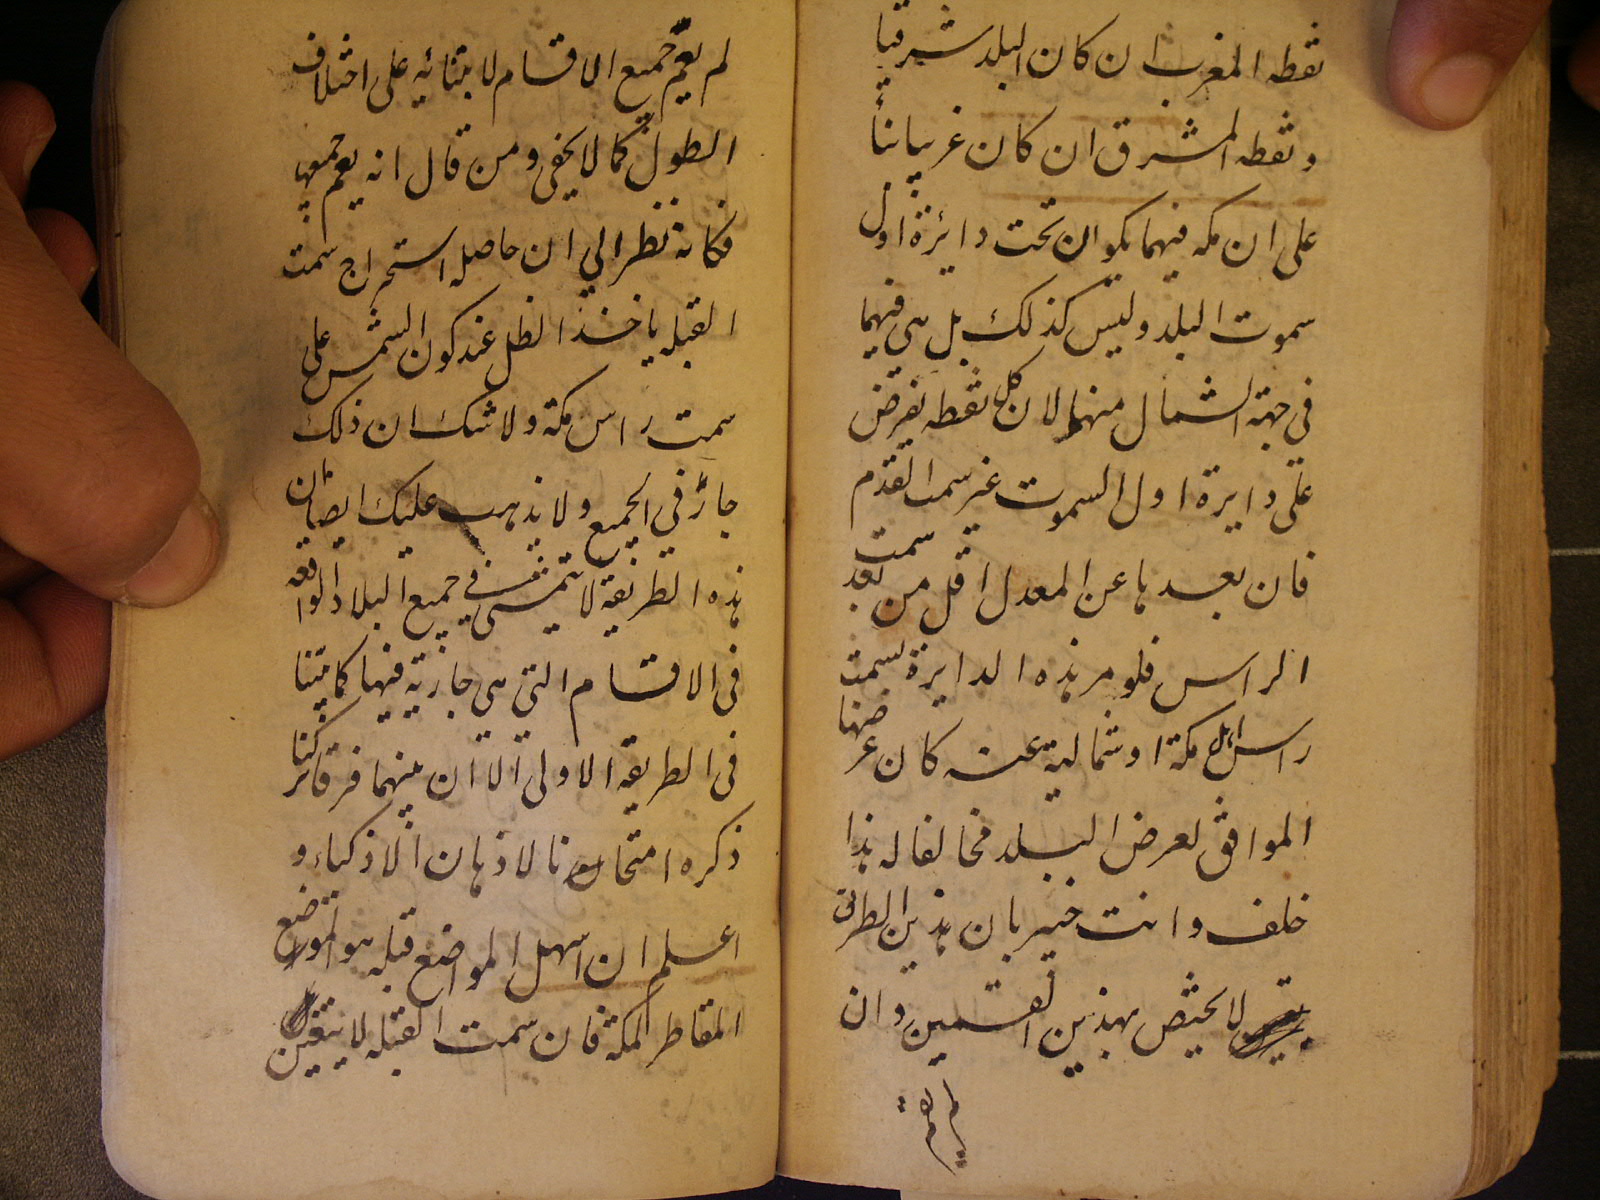 نقطه المغرب ان كان البلد شرقيا
ونقطه المشرق ان كان غربيا بناً
على ان مكه فيهما يكون تحت دائرة اول
سموت البلد وليس كذلك بل هي فيهما
في جهة الشمال منها لان كل نقطه تفرض
على دايرة اول السموت غير سمت القدم
فان بعدها عن المعدل اقل من بعد سمت
الراس فلو مر هذه الدايرة لسمت
راس اهل مكة او شمالية عنه كان عرضها
الموافق لعرض البلد مخالفا له هذا
خلف وانت خبير بان هذين الطرق
لا يختص بهذين القسمين وان
لم يعم
لم يعم جميع الاقسام لابتنائه على اختلاف
الطول كما لا يخفى ومن قال انه يعم جميعها
فكانه نظر الي ان حاصله استخراج سمت
القبله ياخذ الظل عند كون الشمس على
سمت راس مكة ولا شك ان ذلك
جار في الجميع ولا يذهب عليك ايضا ان
هذه الطريقة لا تتمشى في جميع البلاد الواقعه
في الاقسام التي هي جارية فيها كما بينا
في الطريقه الاولى الا ان بينهما فرقا تركنا
ذكره امتحانا لاذهان الاذكياء و
اعلم ان اسهل المواضع قبله هو الموضع
المقاطر لمكة فان سمت القبله لا يتعين